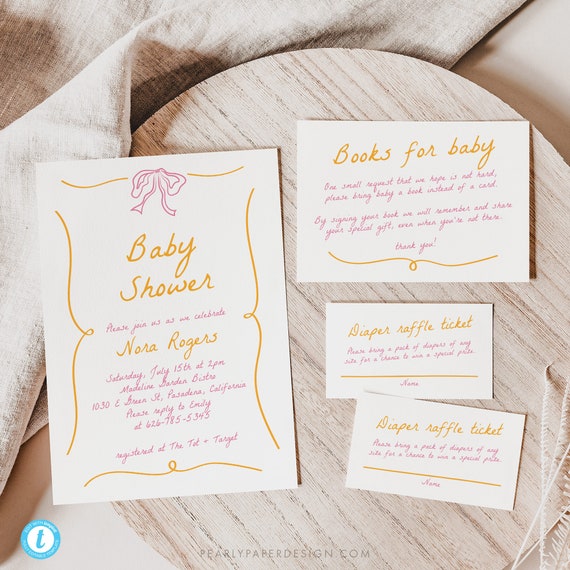 Baby
Shower
Please join us as we celebrate
Nora Rogers
Saturday, July 15th at 2pm
Madeline Garden Bistro
1030 E Green St, Pasadena, California
Please reply to Emily
at 626-785-5345
registered at The Tot + Target
Books for baby
One small request that we hope is not hard,
please bring baby a book instead of a card.
By signing your book we will remember and share
your special gift, even when you're not there.
thank you!
Diaper raffle ticket
Please bring a pack of diapers of any
size for a chance to win a special prize.
Name
Diaper raffle ticket
Please bring a pack of diapers of any
size for a chance to win a special prize.
Name
t
PEARLYPAPERDESIGN.COM